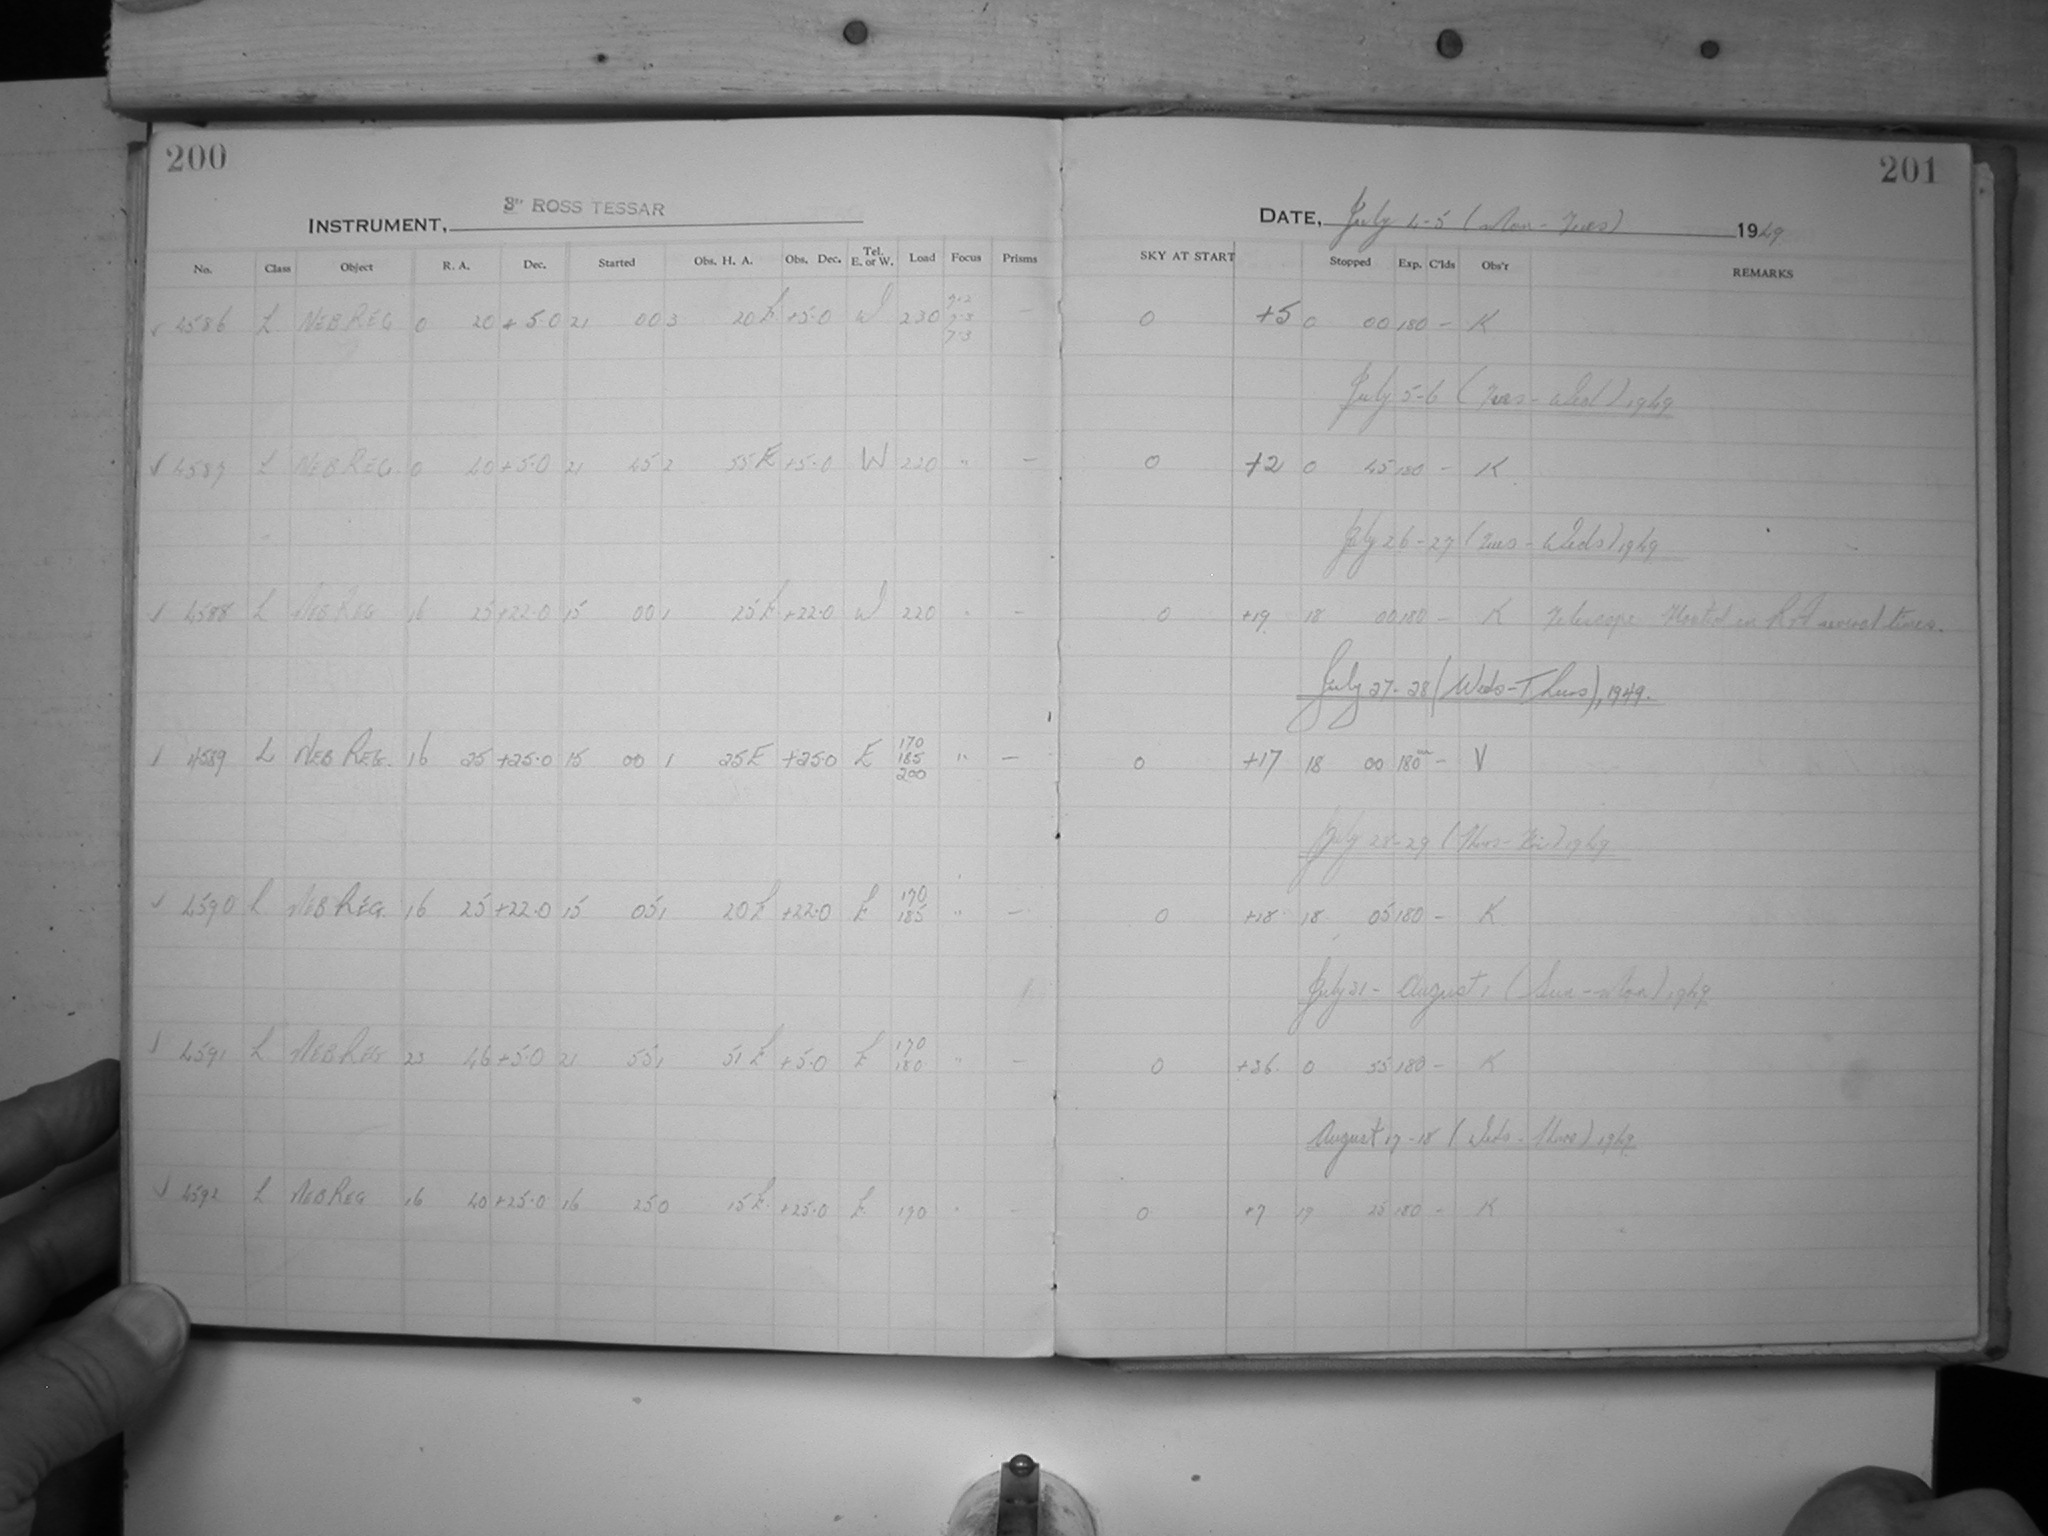 200
201
INSTRUMENT, 3" ROSS TESSAR
DATE, July 4-5 (Mon-Tues) 1949
No. Class Object R. A. Dec. Started Obs. H. A. Obs. Dec. Tel. E. or W. Load Focus Prisms SKY AT START Stopped Exp. C'lds Obs'r REMARKS
√ 4586 L NEB REG 0 20 +5.0 21 00 3 20 E +5.0 W 230 7.2 7.3 7.3 — 0 +5 0 00 180 – K
July 5-6 (Tues-Wed) 1949
√ 4587 L NEB REG. 0 40 +5.0 21 45 2 55 E +5.0 W 220 " — 0 +2 0 45 180 – K
July 26-27 (Tues-Weds) 1949
√ 4588 L NEB REG 16 25 +22.0 15 00 1 25 E +22.0 W 220 " — 0 +19 18 00 180 – K Telescope floated in RA several times.
July 27-28 (Weds-Thurs), 1949.
√ 4589 L NEB REG. 16 25 +25.0 15 00 1 25 E +25.0 E 170 185 200 " — 0 +17 18 00 180m – V
July 28-29 (Thurs-Fri) 1949
√ 4590 L NEB REG. 16 25 +22.0 15 05 1 20 E +22.0 E 170 185 " — 0 +18 18 05 180 – K
July 31 - August 1 (Sun-Mon) 1949
√ 4591 L NEB REG 23 46 +5.0 21 55 1 51 E +5.0 E 170 180 " — 0 +36 0 55 180 – K
August 17-18 (Weds-Thurs) 1949
√ 4592 L NEB REG 16 40 +25.0 16 25 0 15 E +25.0 E 170 " — 0 +7 19 25 180 – K